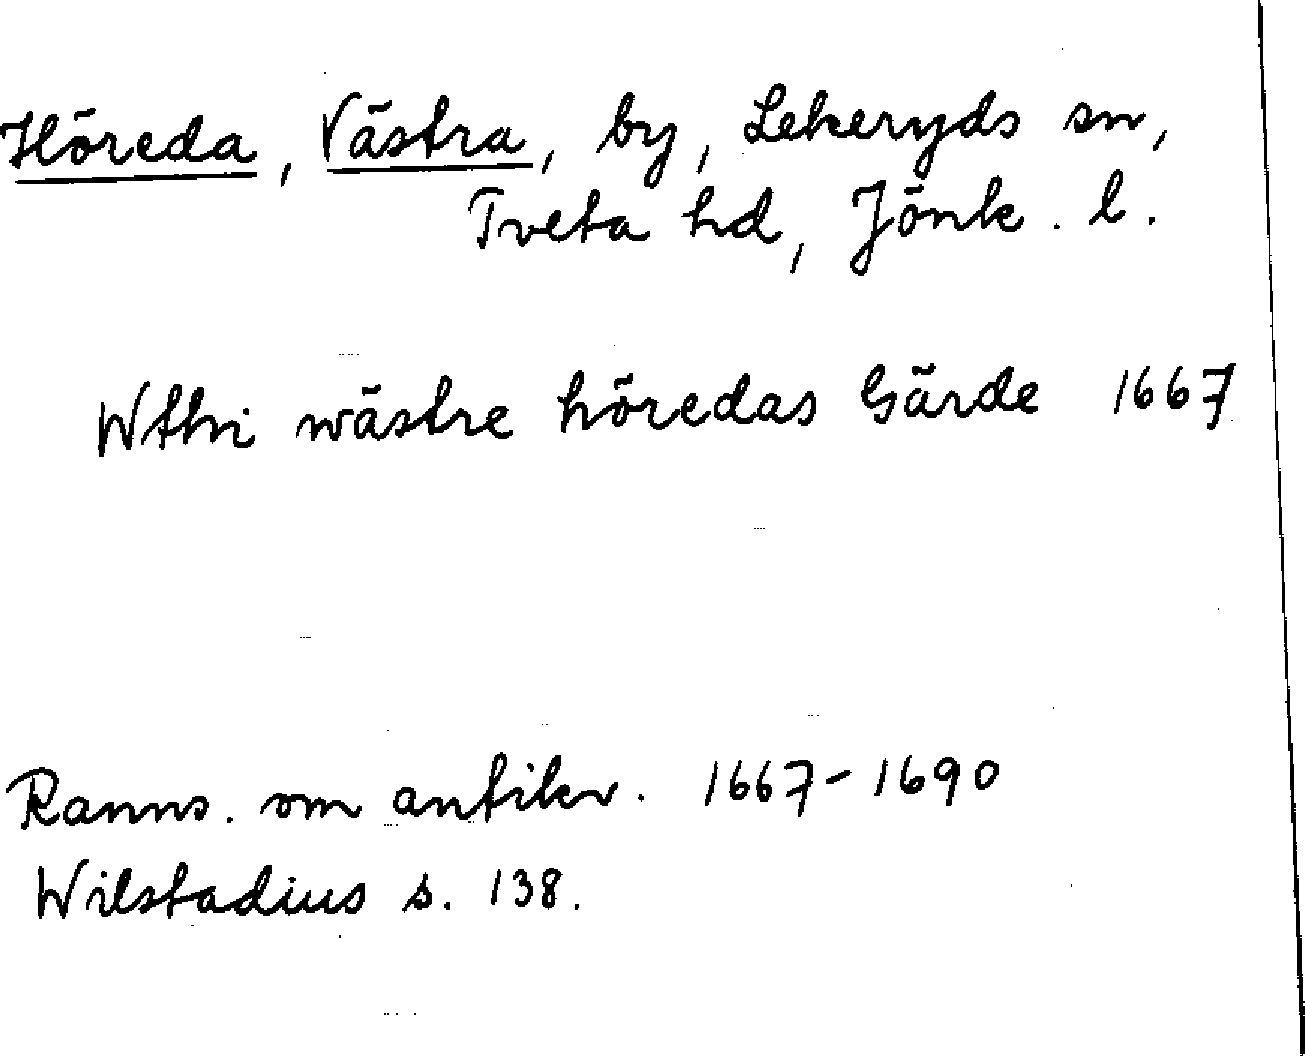 Höreda, Västra, by, Lekeryds sn,
Tveta hd, Jönk. l.
Wthi wästre höredas Gärde 1667
Ranns. om antikv. 1667-1690
Wilstadius s. 138.